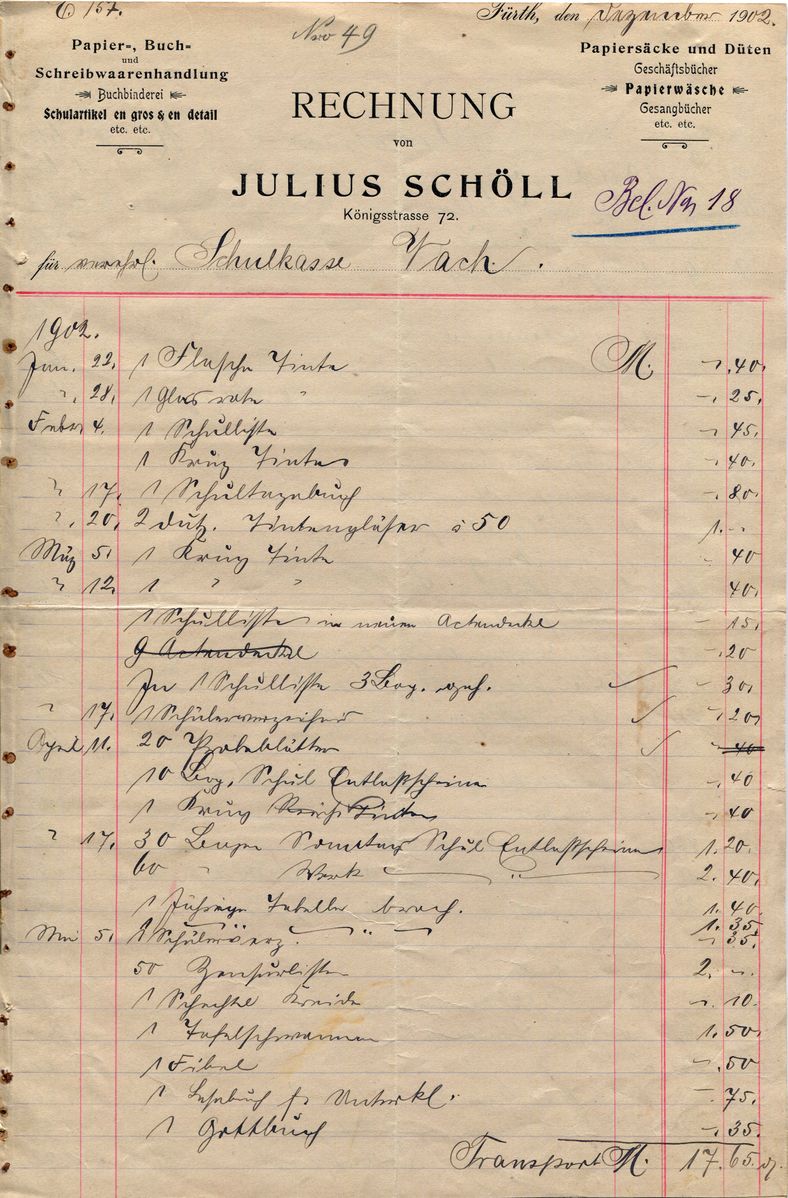 C 157.
Nro 49
Fürth, den Dezember 1902.
Papier-, Buch-
und
Schreibwaarenhandlung
Buchbinderei
Schulartikel en gros & en detail
etc. etc.
Papiersäcke und Düten
Geschäftsbücher
Papierwäsche
Gesangbücher
etc. etc.
RECHNUNG
von
JULIUS SCHÖLL
Königsstrasse 72.
Bel. No 18
für verehrl. Schulkasse Vach.
1902.
Jan. 22. 1 Flasche Tinte M. -.40.
". 28. 1 Glas rote " -.25.
Febr. 4. 1 Schulliste -.45.
1 Krug Tinte -.40.
" 17. 1 Schultagebuch -.80.
". 20. 2 Dutz. Tintengläser à 50 1.-
März 5. 1 Krug Tinte 40
" 12. 1 " " 40.
1 Schulliste in neuen Actendeckel -15.
9 Actendeckel -.20
In 1 Schulliste 3 Bog. geh. -30.
" 17. 1 Schülerverzeichnis -.20
April 11. 20 Probeblätter -40
10 Bog. Schul Entlaßscheine -.40
1 Krug Tinte -.40
" 17. 30 Bogen Sonntag Schul Entlaßscheine 1.20.
60 " Werk " 2.40.
1 Tabelle broch. 1.40.
1.35.
Mai 5. 2 Schülerverz. " -.35.
50 Zensurlisten 2.-.
1 Schachtel Kreide -.10.
1 Tafelschwamm 1.50.
1 Fibel -.50
1 Lesebuch f. Unterkl. -.75.
1 -.35.
Transport M. 17.65